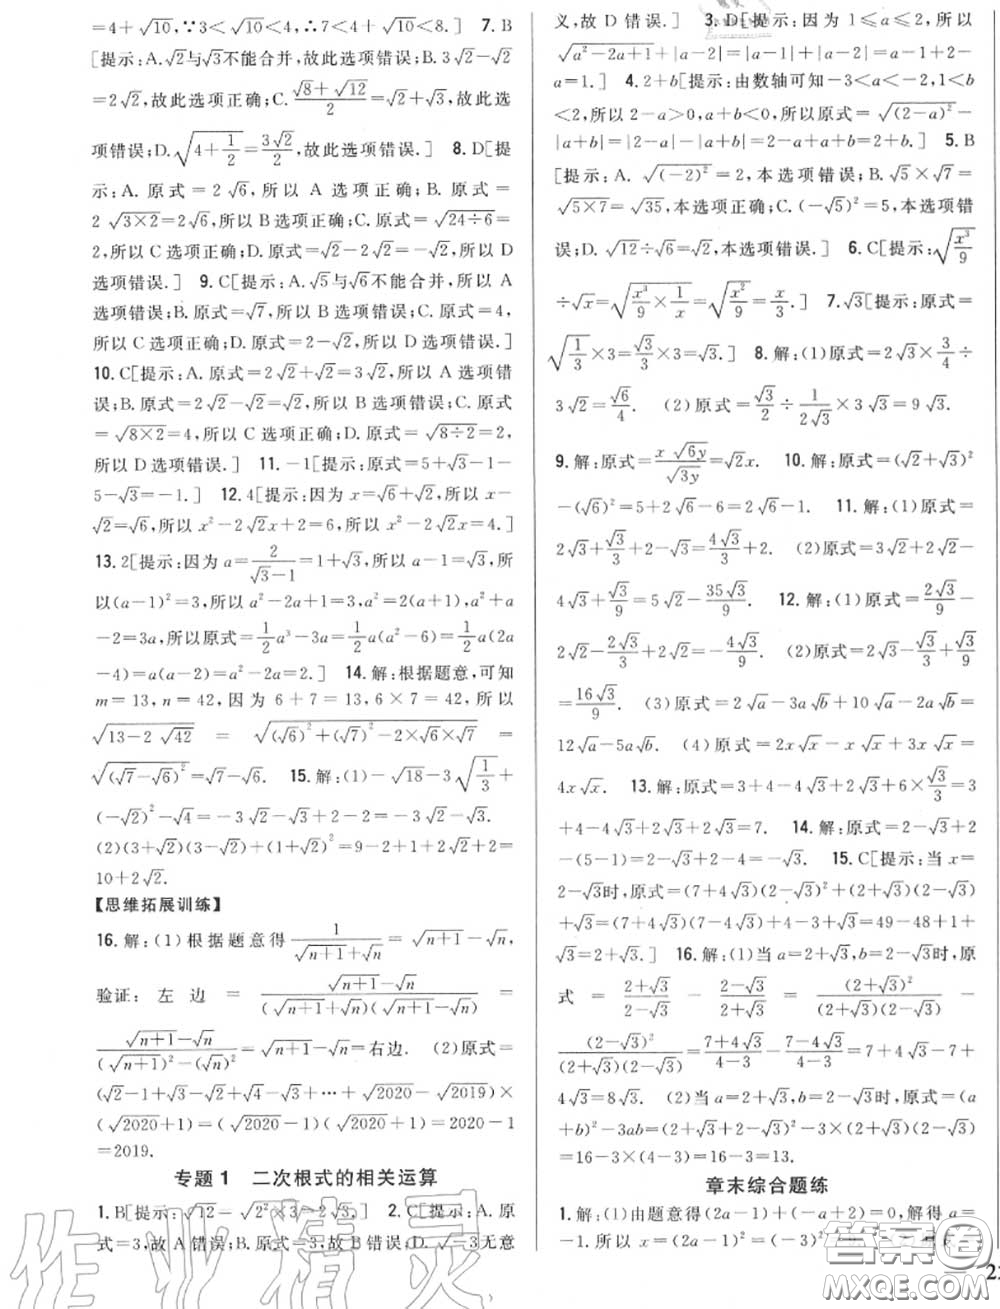 =4+√10,∵3<√10<4,∴7<4+√10<8.]　7. B
[提示:A.√2与√3不能合并,故此选项错误;B.3√2-√2=
2√2,故此选项正确;C.(√8+√12)/2=√2+√3,故此选
项错误;D.√(4+1/2)=3√2/2,故此选项错误.]　8. D[提
示:A. 原式=2√6,所以 A 选项正确;B. 原式=
2√(3×2)=2√6,所以 B 选项正确;C. 原式=√(24÷6)=
2,所以 C 选项正确;D. 原式=√2-2√2=-√2,所以 D
选项错误.]　9. C[提示:A.√5与√6不能合并,所以 A
选项错误;B. 原式=√7,所以 B 选项错误;C. 原式=4,
所以 C 选项正确;D. 原式=2-√2,所以 D 选项错误.]
10. C[提示:A. 原式=2√2+√2=3√2,所以 A 选项错
误;B. 原式=2√2-√2=√2,所以 B 选项错误;C. 原式
=√(8×2)=4,所以 C 选项正确;D. 原式=√(8÷2)=2,
所以 D 选项错误.]　11. -1[提示:原式=5+√3-1-
5-√3=-1.]　12. 4[提示:因为 x=√6+√2,所以 x-
√2=√6,所以 x²-2√2x+2=6,所以 x²-2√2x=4.]
13. 2[提示:因为 a=2/(√3-1)=1+√3,所以 a-1=√3,所
以(a-1)²=3,所以 a²-2a+1=3,a²=2(a+1),a²+a
-2=3a,所以原式=1/2a³-3a=1/2a(a²-6)=1/2a(2a
-4)=a(a-2)=a²-2a=2.]　14. 解:根据题意,可知
m=13,n=42,因为 6+7=13,6×7=42,所以
√(13-2√42) = √((√6)²+(√7)²-2×√6×√7) =
√((√7-√6)²)=√7-√6.　15. 解:(1)-√18-3√(1/3)+
(-√2)²-√4=-3√2-√3+2-2=-3√2-√3.
(2)(3+√2)(3-√2)+(1+√2)²=9-2+1+2√2+2=
10+2√2.
【思维拓展训练】
16. 解:(1)根据题意得 1/(√(n+1)+√n)=√(n+1)-√n,
验证:左边=(√(n+1)-√n)/((√(n+1)+√n)(√(n+1)-√n))=
(√(n+1)-√n)/((√(n+1))²-(√n)²)=√(n+1)-√n=右边.　(2)原式=
(√2-1+√3-√2+√4-√3+…+√2020-√2019)×
(√2020+1)=(√2020-1)(√2020+1)=2020-1
=2019.
专题 1　二次根式的相关运算
1. B[提示:√12-√(2²×3)=2√3.]　2. C[提示:A. 原
式=3,故 A 错误;B. 原式=3,故 B 错误;D.√-3无意
义,故 D 错误.]　3. D[提示:因为 1≤a≤2,所以
√(a²-2a+1)+|a-2|=|a-1|+|a-2|=a-1+2-
a=1.]　4. 2+b[提示:由数轴可知-3<a<-2,1<b
<2,所以 2-a>0,a+b<0,所以原式=√((2-a)²)-
|a+b|=|2-a|-|a+b|=2-a+a+b=2+b.]　5. B
[提示:A. √((-2)²)=2,本选项错误;B.√5×√7=
√(5×7)=√35,本选项正确;C.(-√5)²=5,本选项错
误;D.√12÷√6=√2,本选项错误.]　6. C[提示:√(x³/9)
÷√x=√(x³/9×1/x)=√(x²/9)=x/3.]　7. √3[提示:原式=
√(1/3)×3=√3/3×3=√3.]　8. 解:(1)原式=2√3×3/4÷
3√2=√6/4.　(2)原式=√3/2÷1/(2√3)×3√3=9√3.
9. 解:原式=x√(6y)/√(3y)=√2x.　10. 解:原式=(√2+√3)²
-(√6)²=5+2√6-6=2√6-1.　11. 解:(1)原式=
2√3+√3/2+2-2√3/3=4√3/3+2.　(2)原式=3√2+2√2-
4√3+√3/9=5√2-35√3/9.　12. 解:(1)原式=2√3/9+
2√2-2√3/3-2√2=-4√3/9.　(2)原式=2√3-√3/3+√3/9
=16√3/9.　(3)原式=2√a-3a√b+10√a-2a√b=
12√a-5a√b.　(4)原式=2x√x-x√x+3x√x=
4x√x.　13. 解:原式=3+4-4√3+2√3+6×√3/3=3
+4-4√3+2√3+2√3=7.　14. 解:原式=2-√3+2
-(5-1)=2-√3+2-4=-√3.　15. C[提示:当 x=
2-√3时,原式=(7+4√3)(2-√3)²+(2+√3)(2-√3)
+√3=(7+4√3)(7-4√3)+4-3+√3=49-48+1
+√3=2+√3.]　16. 解:(1)当 a=2+√3,b=2-√3时,原
式=(2+√3)/(2-√3)-(2-√3)/(2+√3)=(2+√3)²/((2+√3)(2-√3))-
(2-√3)²/((2+√3)(2-√3))=(7+4√3)/(4-3)-(7-4√3)/(4-3)=7+4√3-7+
4√3=8√3.　(2)当 a=2+√3,b=2-√3时,原式=(a+
b)²-3ab=(2+√3+2-√3)²-3×(2+√3)(2-√3)
=16-3×(4-3)=16-3=13.
章末综合题练
1. 解:(1)由题意得(2a-1)+(-a+2)=0,解得 a=
-1.所以 x=(2a-1)²=(-2-1)²=
作业精灵
答案圈
MXQE.COM